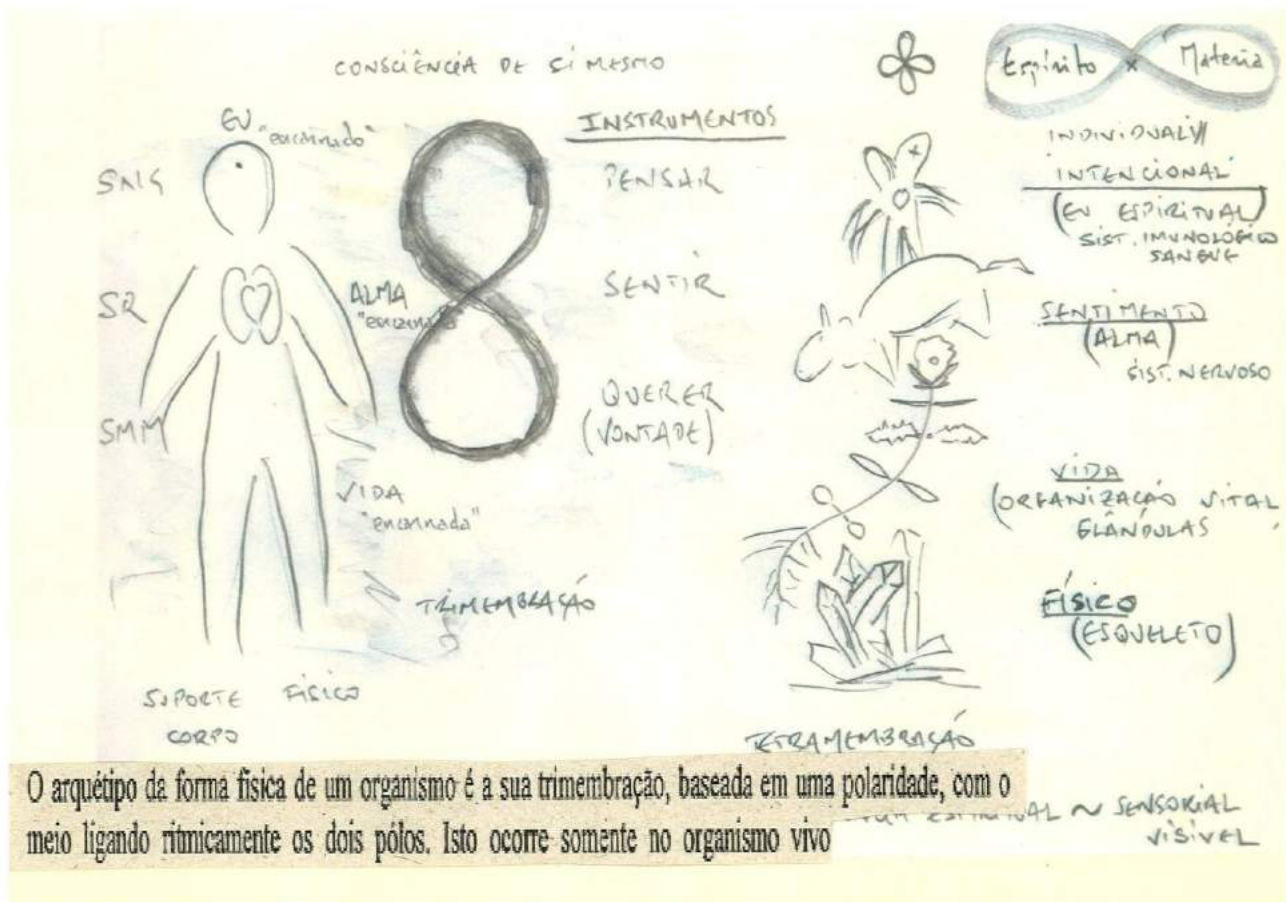 CONSCIÊNCIA DE SI MESMO
EU
"encarnado"
SNS
SR
SMM
ALMA
"encarnada"
VIDA
"encarnada"
TRIMEMBRAÇÃO
SUPORTE FÍSICO
CORPO
INSTRUMENTOS
PENSAR
SENTIR
QUERER
(VONTADE)
Espírito x Materia
INDIVIDUALI//
INTENCIONAL
(EU ESPIRITUAL)
SIST. IMUNOLÓGICO
SANGUE
SENTIMENTO
(ALMA)
SIST. NERVOSO
VIDA
(ORGANIZAÇÃO VITAL
GLÂNDULAS
FÍSICO
(ESQUELETO)
TETRAMEMBRAÇÃO
~ SENSORIAL
VISIVEL
O arquétipo da forma física de um organismo é a sua trimembração, baseada em uma polaridade, com o
meio ligando ritmicamente os dois pólos. Isto ocorre somente no organismo vivo